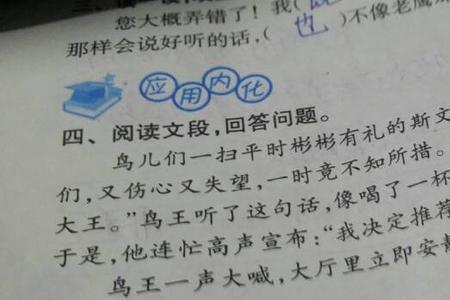 您大概弄错了!我(既
那样会说好听的话,(也)不像老鹰
应用内化
四、阅读文段,回答问题。
鸟儿们一扫平时彬彬有礼的斯文
们,又伤心又失望,一时竟不知所措。
大王。”鸟王听了这句话,像喝了一杯
于是,他连忙高声宣布:“我决定推荐
鸟王一声大喊,大厅里立即安